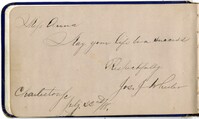 Miss Anna
May your life be a success
Respectfully
Jos. J. Wheeler
Charlestown
July 20th